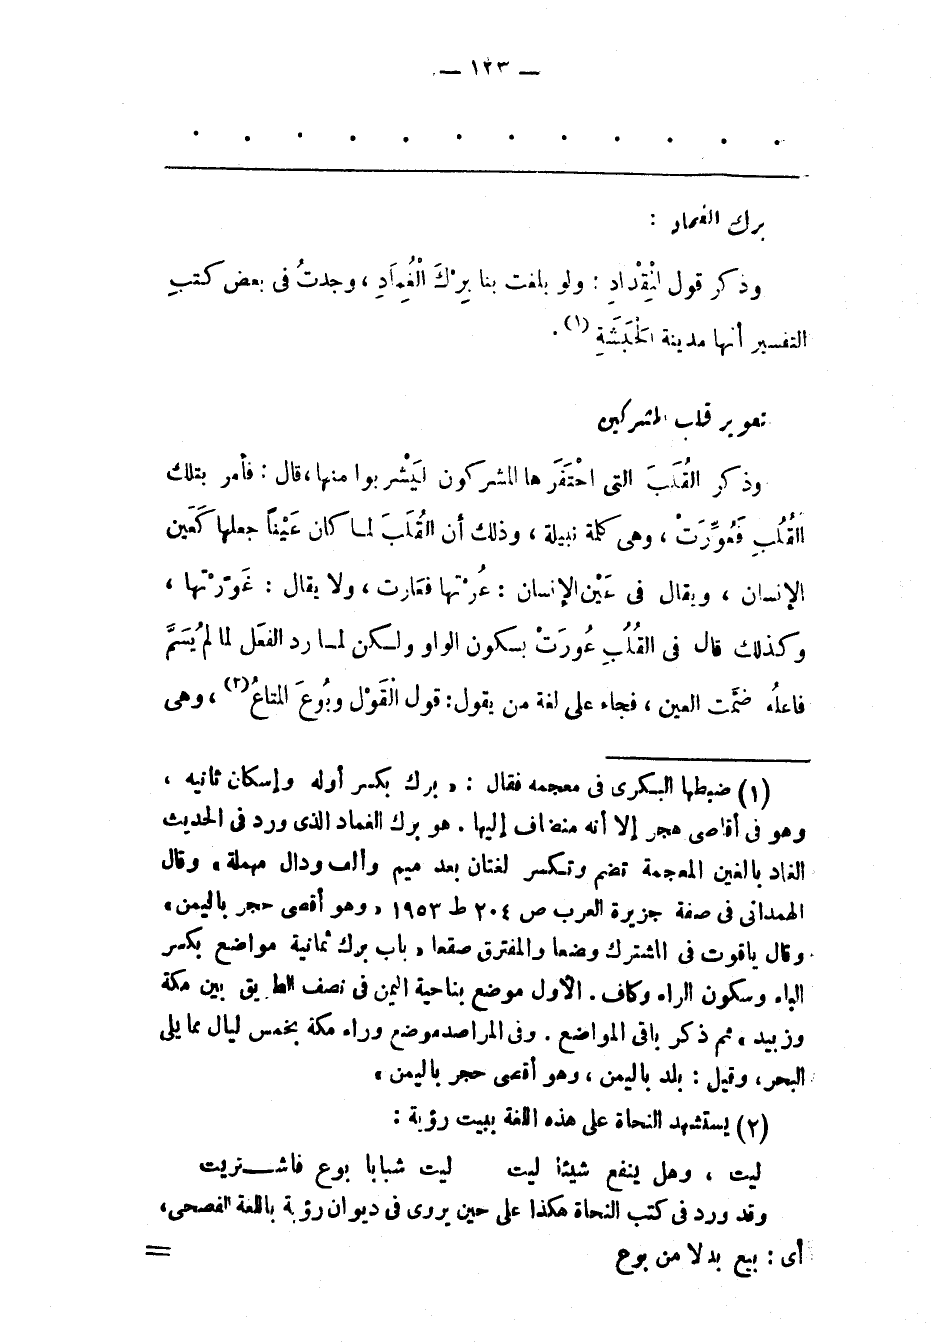 — ١٢٣ —
. . . . . . . . . . . .
برك الغماد :
وذكر قول المِقْدادِ : ولو بلغت بنا بِرْكَ الْغُمَِادِ ، وجدتُ فى بعض كتبِ
التفسير أنها مدينة الحَبَشَةِ (١) .
تعوير قلب المشركين
وذكر القُلَبَ التى احْتَفَرَها المشركون لِيَشْربوا منها، قال : فأمر بتلك
القُلُبِ فَعُوِّرَتْ ، وهى كلمة نبيلة ، وذلك أن القُلَبَ لمـا كان عَيْناً جعلها كَعَين
الإنسان ، ويقال فى عَيْن الإنسان : عُرْتها فعَارت ، ولا يقال : عَوّرْتها ،
وكذلك قال فى القُلُبِ عُورَتْ بسكون الواو ولـكن لمـا رد الفعَل لما لم يُسَمَّ
فاعلُه ضمَّت العين ، فجاء على لغة من يقول: قول الْقَوْل وبُوعَ المتاعُ (٢) ، وهى
(١) ضبطها البـكرى فى معجمه فقال : « برك بكسر أوله وإسكان ثانيه ،
وهو فى أقاصى هجر إلا أنه منضاف إليها . هو برك الغماد الذى ورد فى الحديث
الغاد بالغين المعجمة تضم وتـكسر لغتان بعد ميم وألف ودال مهملة » وقال
الهمدانى فى صفة جزيرة العرب ص ٢٠٤ ط ١٩٥٣ « وهو أقصى حجر باليمن »
وقال ياقوت فى المشترك وضعا والمفترق صقعا « باب برك ثمانية مواضع بكسر
الباء وسكون الراء وكاف . الأول موضع بناحية اليمن فى نصف الطريق بين مكة
وزبيد » ثم ذكر باقى المواضع . وفى المراصد موضع وراء مكة بخمس ليال مما يلى
البحر، وقيل : بلد باليمن ، وهو أقصى حجر باليمن »
(٢) يستشهد النحاة على هذه اللغة ببيت رؤبة :
ليت ، وهل ينفع شيئا ليت ليت شبابا بوع فاشـتريت
وقد ورد فى كتب النحاة هكذا على حين يروى فى ديوان رؤبة باللغة الفصحى،
أى : بيع بدلا من بوع =